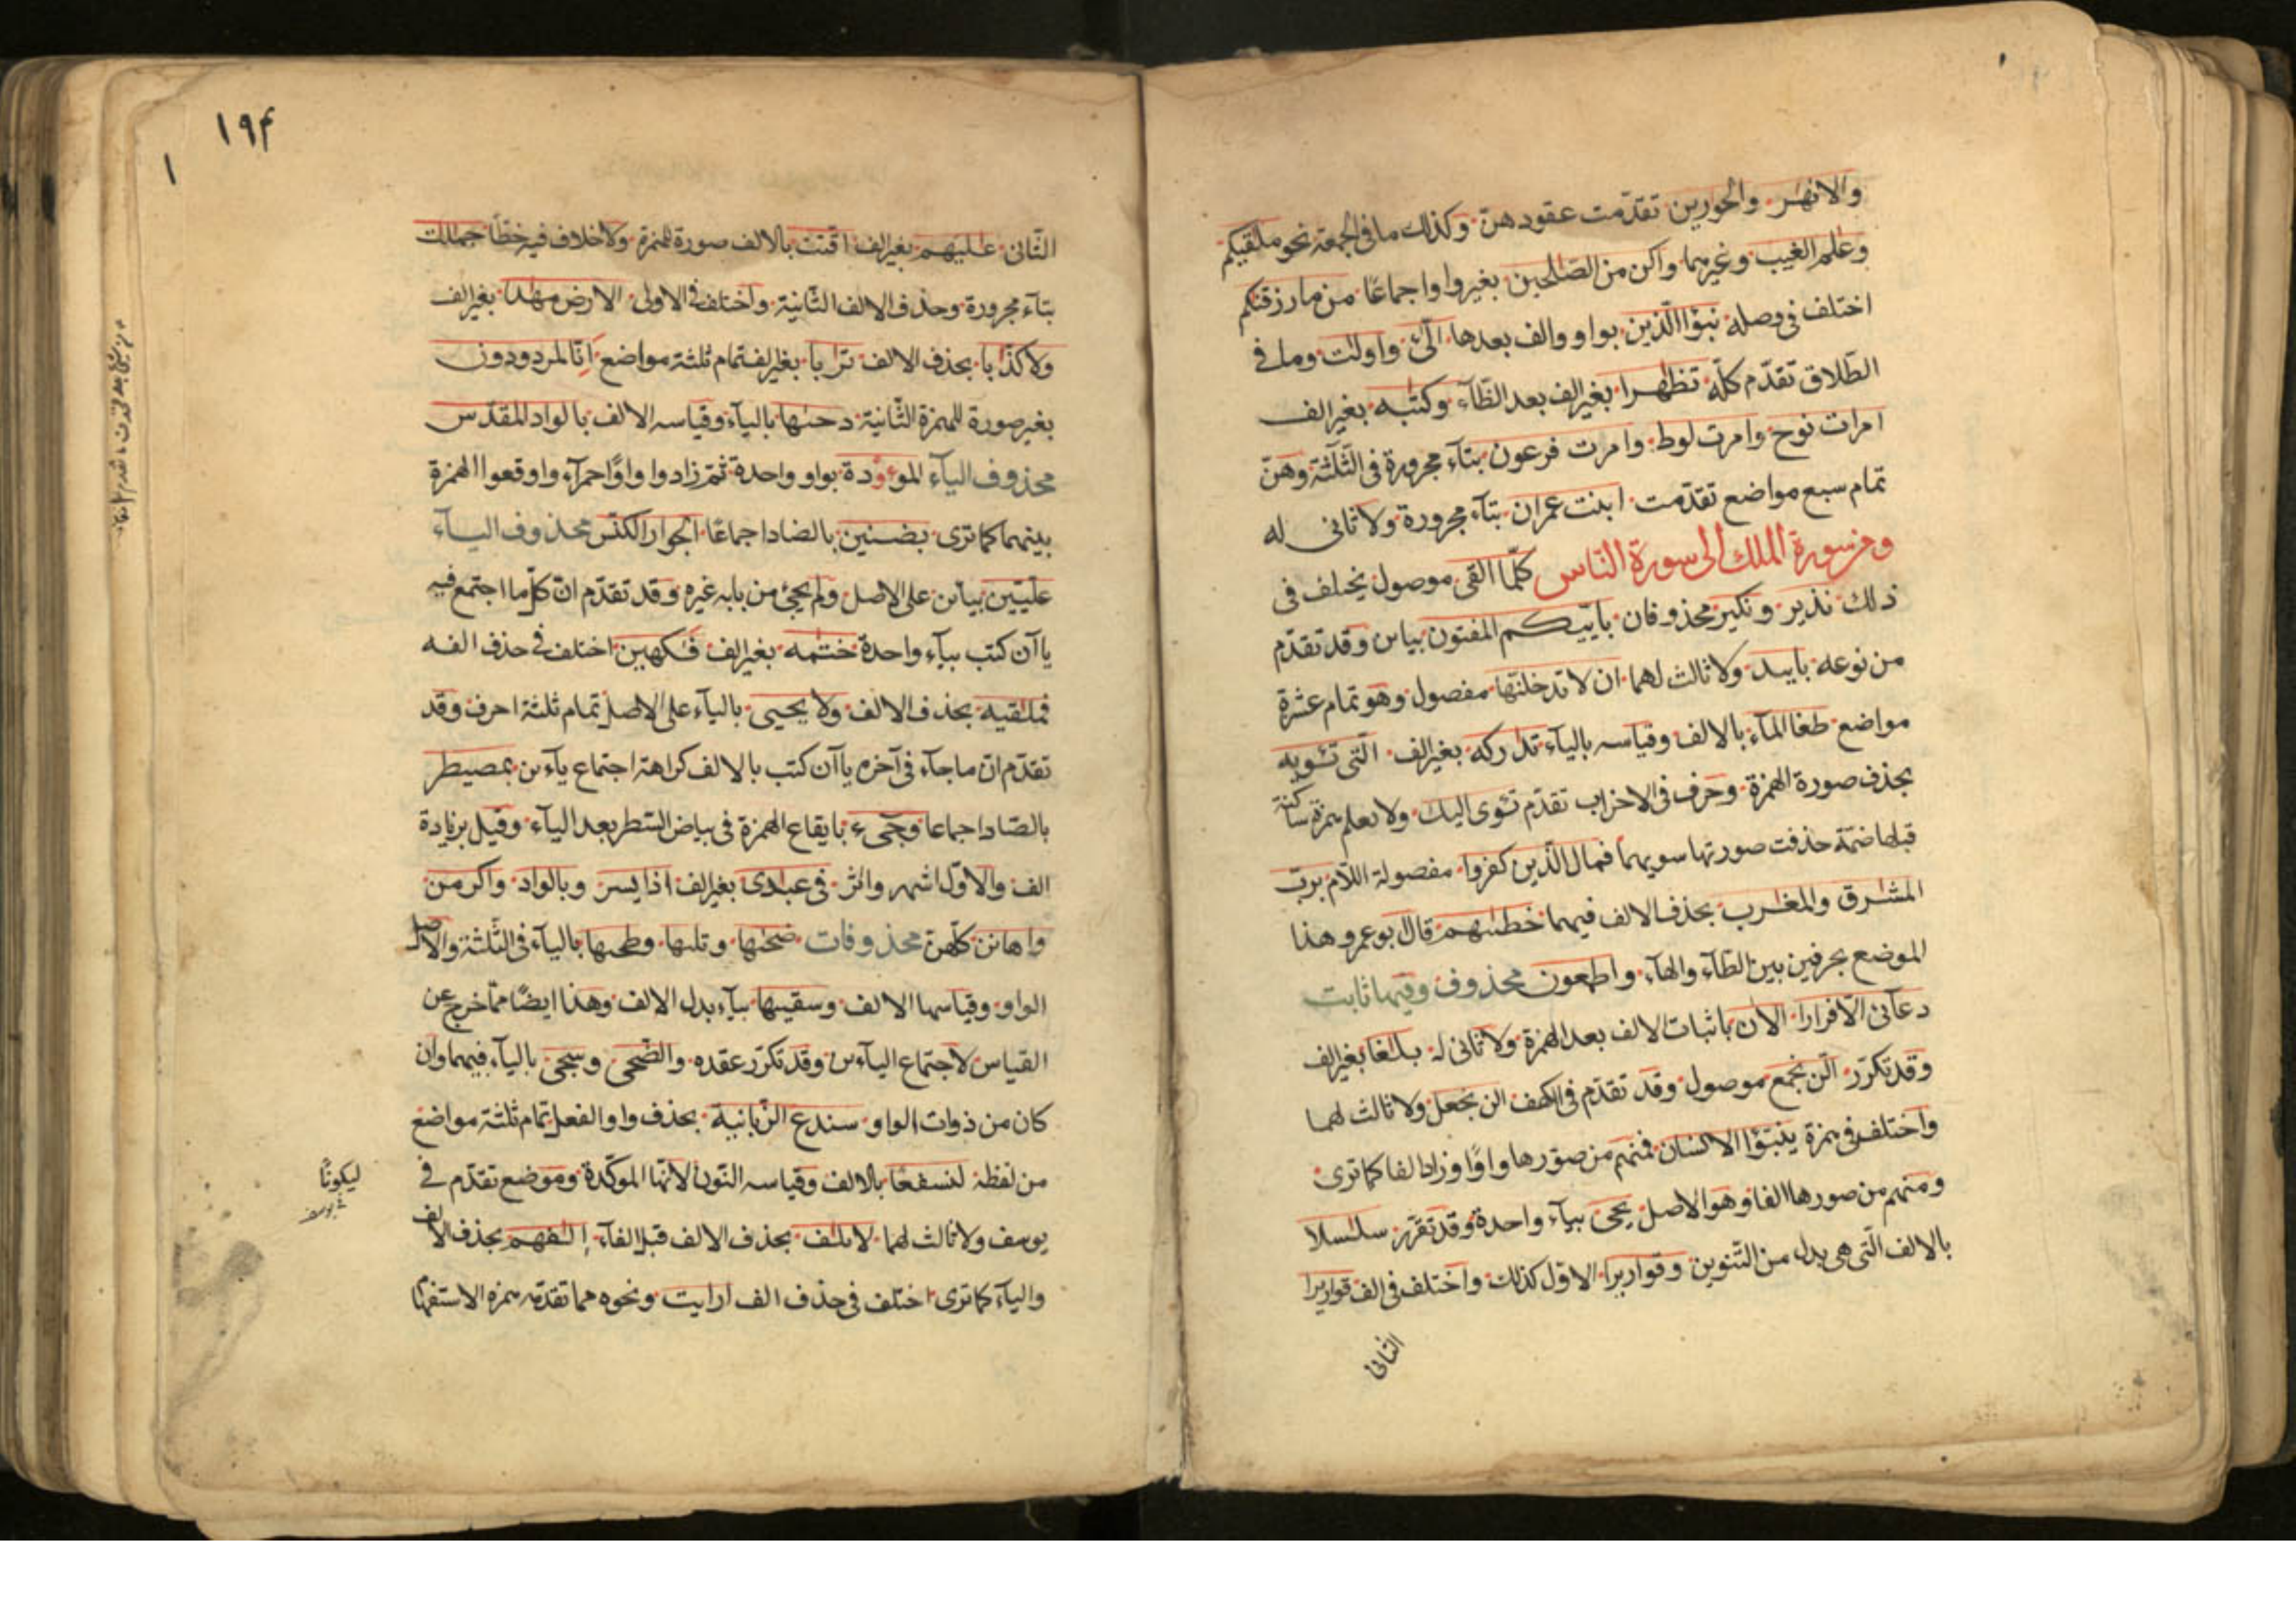 والانهٰر والحوارين تقدّمت عقودهن وكذلك ما فى الجمعة نحو ملٰقيكم
وعٰلم الغيب وغيرهما واكن من الصّٰلحين بغير واو اجماعًا من ما رزقنٰكم
اختلف فى وصله نبؤا الّذين بواو والف بعدها الّٰئ واولٰت وما فى
الطّلاق تقدّم كلّه تظٰهرا بغير الف بعد الظّآء وكتٰبه بغير الف
امرات نوح وامرت لوط وامرت فرعون بتآء مجرورة فى الثّلٰثة وهنّ
تمام سبع مواضع تقدّمت ابنت عمران بتآء مجرورة ولا ثانى له
ومن سورة الملك الى سورة النّاس كلّما القى موصول يختلف فى
ذلك نذير ونكير محذوفان باييّكم المفتون بياىن وقد تقدّم
من نوعه باييد ولا ثالث لهما ان لا تدخلنّها مفصول وهو تمام عشرة
مواضع طغا المآء بالالف وقياسه باليآء تدٰركه بغير الف الّتى تئويه
بحذف صورة الهمزة وحرف فى الاحزاب تقدّم تئوى اليك ولا يعلم همزة ساكنة
قبلها ضمّة حذفت صورتها سويهما فمال الّذين كفروا مفصولة اللّام بربّ
المشٰرق والمغٰرب بحذف الالف فيهما خطئٰتهم قال ابو عمرو هذا
الموضع بحرفين بين الطّآء والهآء واطيعون محذوف وفيها ثابت
دعآئى الّا فرارا الان باثبات الالف بعد الهمزة ولا ثانى له بلٰغا بغير الف
وقد تكرّر الّن نجمع موصول وقد تقدّم فى الكهف الن نجعل ولا ثالث لهما
واختلف فى همزة ينبّؤا الانسان فمنهم من صوّرها واوًا وزاد الفا كما ترى
ومنهم من صورها الفا وهو الاصل يحى بيآء واحدة وقد تقرّر سلٰسلا
بالالف الّتى هى بدل من التّنوين وقواريرا الاوّل كذلك واختلف فى الف قواريرا
الثّانى
۱۹۴
۱
الثّانى عٰليهم بغير الف اقّتت بالالف صورة للهمزة ولا خلاف فيه خطّا جمٰلت
بتآء مجرورة وحذف الالف الثّانية واختلف فى الاولى الارض مهٰدا بغير الف
ولا كذّٰبا بحذف الالف ترٰبا بغير الف تمام ثلٰثة مواضع اءنّا لمردودون
بغير صورة للهمزة الثّانية دحىٰها باليآء وقياسه الالف بالواد المقدّس
محذوف اليآء الموءودة بواو واحدة ثمّ زادوا واوًا حمرآء واوقعوا الهمزة
بينهما كما ترى بضنين بالضاد اجماعًا الجوار الكنّس محذوف اليآء
علّيّين بياىن على الاصل ولم يجئ من بابه غيره وقد تقدّم انّ كلّ ما اجتمع فيه
ياآن كتب بيآء واحدة ختٰمه بغير الف فٰكهين اختلف فى حذف الفه
فملٰقيه بحذف الالف ولا يحيى باليآء على الاصل تمام ثلٰثة احرف وقد
تقدّم انّ ما جآء فى آخره ياآن كتب بالالف كراهة اجتماع يآءىن بمصيطر
بالصّاد اجماعا وجىء بايقاع الهمزة فى بياض السّطر بعد اليآء وقيل بزيادة
الف والاوّل اشهر واثر فى عبٰدى بغير الف اذا يسر وبالواد واكرمن
واهانن كلّهنّ محذوفات ضحىٰها وتلىٰها وطحىٰها باليآء فى الثّلٰثة والاصل
الواو وقياسها الالف وسقيٰها بيآء بدل الالف وهذا ايضًا ممّا خرج عن
القياس لاجتماع اليآءىن وقد تكرّر عقده والضّحى وسجى باليآء فيهما وان
كان من ذوات الواو سندع الزّبانية بحذف واو الفعل تمام ثلثة مواضع
من لفظه لنسفعًا بالالف وقياسه النّون لانّها الموكّدة وموضع تقدّم فى
ليكونًا
يوسف ولا ثالث لهما لايلٰف بحذف الالف قبل الفآء إلٰفهم بحذف الالف
واليآء كما ترى اختلف فى حذف الف ارايت ونحوه مما تقدّمه همزة الاستفهام